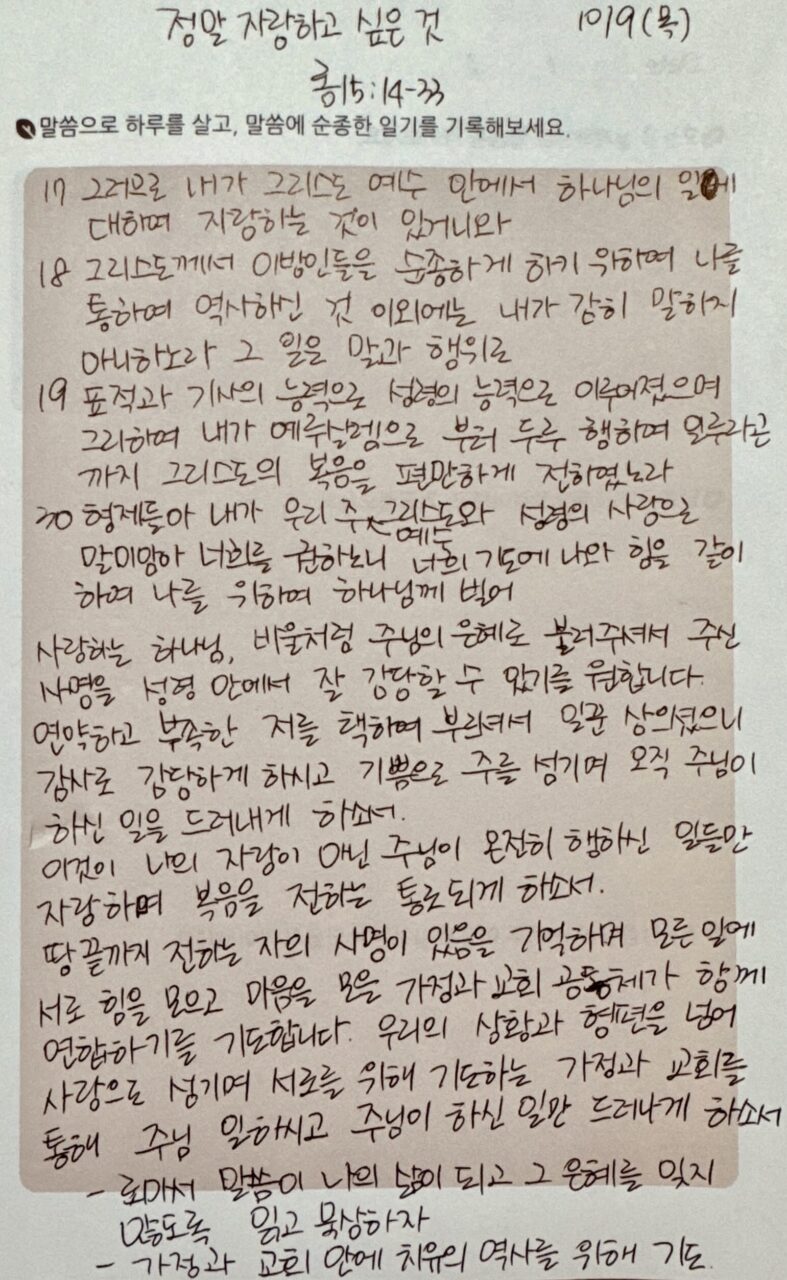 정말 자랑하고 싶은 것 10/9(목)
롬15:14-33
말씀으로 하루를 살고, 말씀에 순종한 일기를 기록해보세요.
17 그러므로 내가 그리스도 예수 안에서 하나님의 일에
대하여 자랑하는 것이 있거니와
18 그리스도께서 이방인들을 순종하게 하기 위하여 나를
통하여 역사하신 것 이외에는 내가 감히 말하지
아니하노라 그 일은 말과 행위로
19 표적과 기사의 능력으로 성령의 능력으로 이루어졌으며
그리하여 내가 예루살렘으로 부터 두루 행하여 일루리곤
까지 그리스도의 복음을 편만하게 전하였노라
30 형제들아 내가 우리 주 예수 그리스도와 성령의 사랑으로
말미암아 너희를 권하노니 너희 기도에 나와 힘을 같이
하여 나를 위하여 하나님께 빌어
사랑하는 하나님, 바울처럼 주님의 은혜로 불러주셔서 주신
사명을 성령 안에서 잘 감당할 수 있기를 원합니다.
연약하고 부족한 저를 택하여 부르셔서 일꾼 삼으셨으니
감사로 감당하게 하시고 기쁨으로 주를 섬기며 오직 주님이
하신 일을 드러내게 하소서.
이것이 나의 자랑이 아닌 주님이 온전히 행하신 일들만
자랑하며 복음을 전하는 통로되게 하소서.
땅끝까지 전하는 자의 사명이 있음을 기억하며 모든 일에
서로 힘을 모으고 마음을 모을 가정과 교회 공동체가 함께
연합하기를 기도합니다. 우리의 상황과 형편을 넘어
사랑으로 섬기며 서로를 위해 기도하는 가정과 교회를
통해 주님 일하시고 주님이 하신 일만 드러나게 하소서
- 로마서 말씀이 나의 삶이 되고 그 은혜를 잊지
않도록 읽고 묵상하자
- 가정과 교회 안에 치유의 역사를 위해 기도.